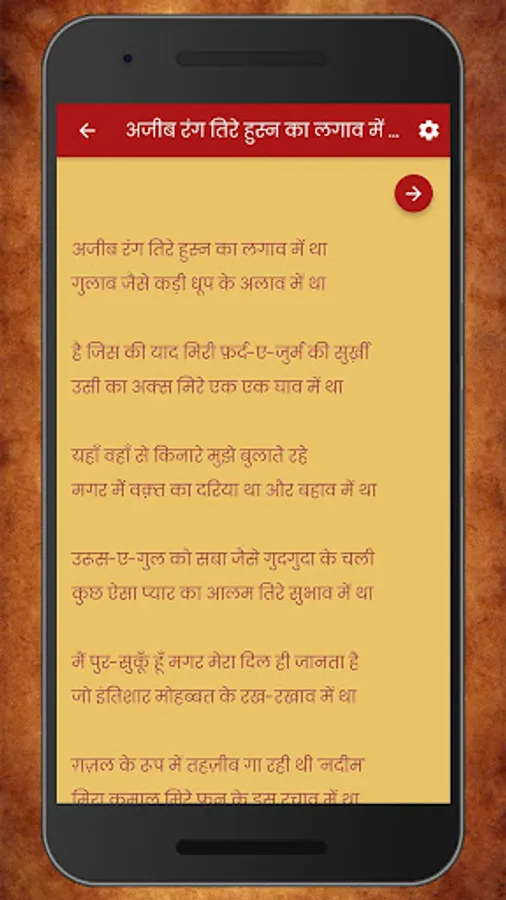 अजीब रंग तिरे हुस्न का लगाव में ...
अजीब रंग तिरे हुस्न का लगाव में था
गुलाब जैसे कड़ी धूप के अलाव में था
है जिस की याद मिरी फ़र्द-ए-जुर्म की सुर्ख़ी
उसी का अक्स मिरे एक एक घाव में था
यहाँ वहाँ से किनारे मुझे बुलाते रहे
मगर मैं वक़्त का दरिया था और बहाव में था
उरूस-ए-गुल को सबा जैसे गुदगुदा के चली
कुछ ऐसा प्यार का आलम तिरे सुभाव में था
मैं पुर-सुकूँ हूँ मगर मेरा दिल ही जानता है
जो इंतिशार मोहब्बत के रख-रखाव में था
ग़ज़ल के रूप में तहज़ीब गा रही थी 'नदीम'
मिरा कमाल मिरे फ़न के इस रचाव में था